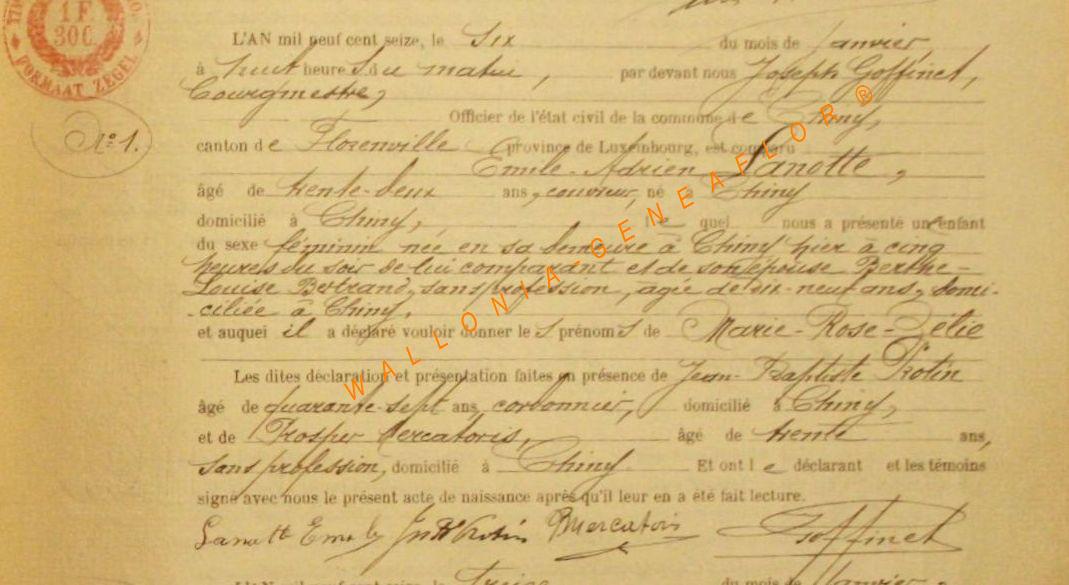 1 F
30C
FORMAAT ZEGEL
L'AN mil neuf cent seize, le six du mois de janvier,
à huit heures du matin, par devant nous Joseph Goffinet,
Bourgmestre,
Officier de l'état civil de la commune de Chiny,
N° 1.
canton de Florenville province de Luxembourg, est comparu
Emile-Adrien Lanotte,
âgé de trente-deux ans, couvreur, né à Chiny
domicilié à Chiny, lequel nous a présenté un enfant
du sexe féminin née en sa demeure à Chiny hier à cinq
heures du soir de lui comparant et de son épouse Berthe-
Louise Bertrand, sans profession, âgée de dix-neuf ans, domi-
-ciliée à Chiny,
et auquel il a déclaré vouloir donner les prénoms de Marie-Rose-Zélie
Les dites déclaration et présentation faites en présence de Jean-Baptiste
âgé de quarante-sept ans, cordonnier, domicilié à Chiny,
et de Prosper Mercatoris, âgé de trente ans,
sans profession, domicilié à Chiny. Et ont le déclarant et les témoins
signé avec nous le présent acte de naissance après qu'il leur en a été fait lecture.
Lanotte Emile PMercatoris Goffinet
L'AN mil neuf cent seize, le treize du mois de janvier,
WALLONIA-GENEAFLOR®